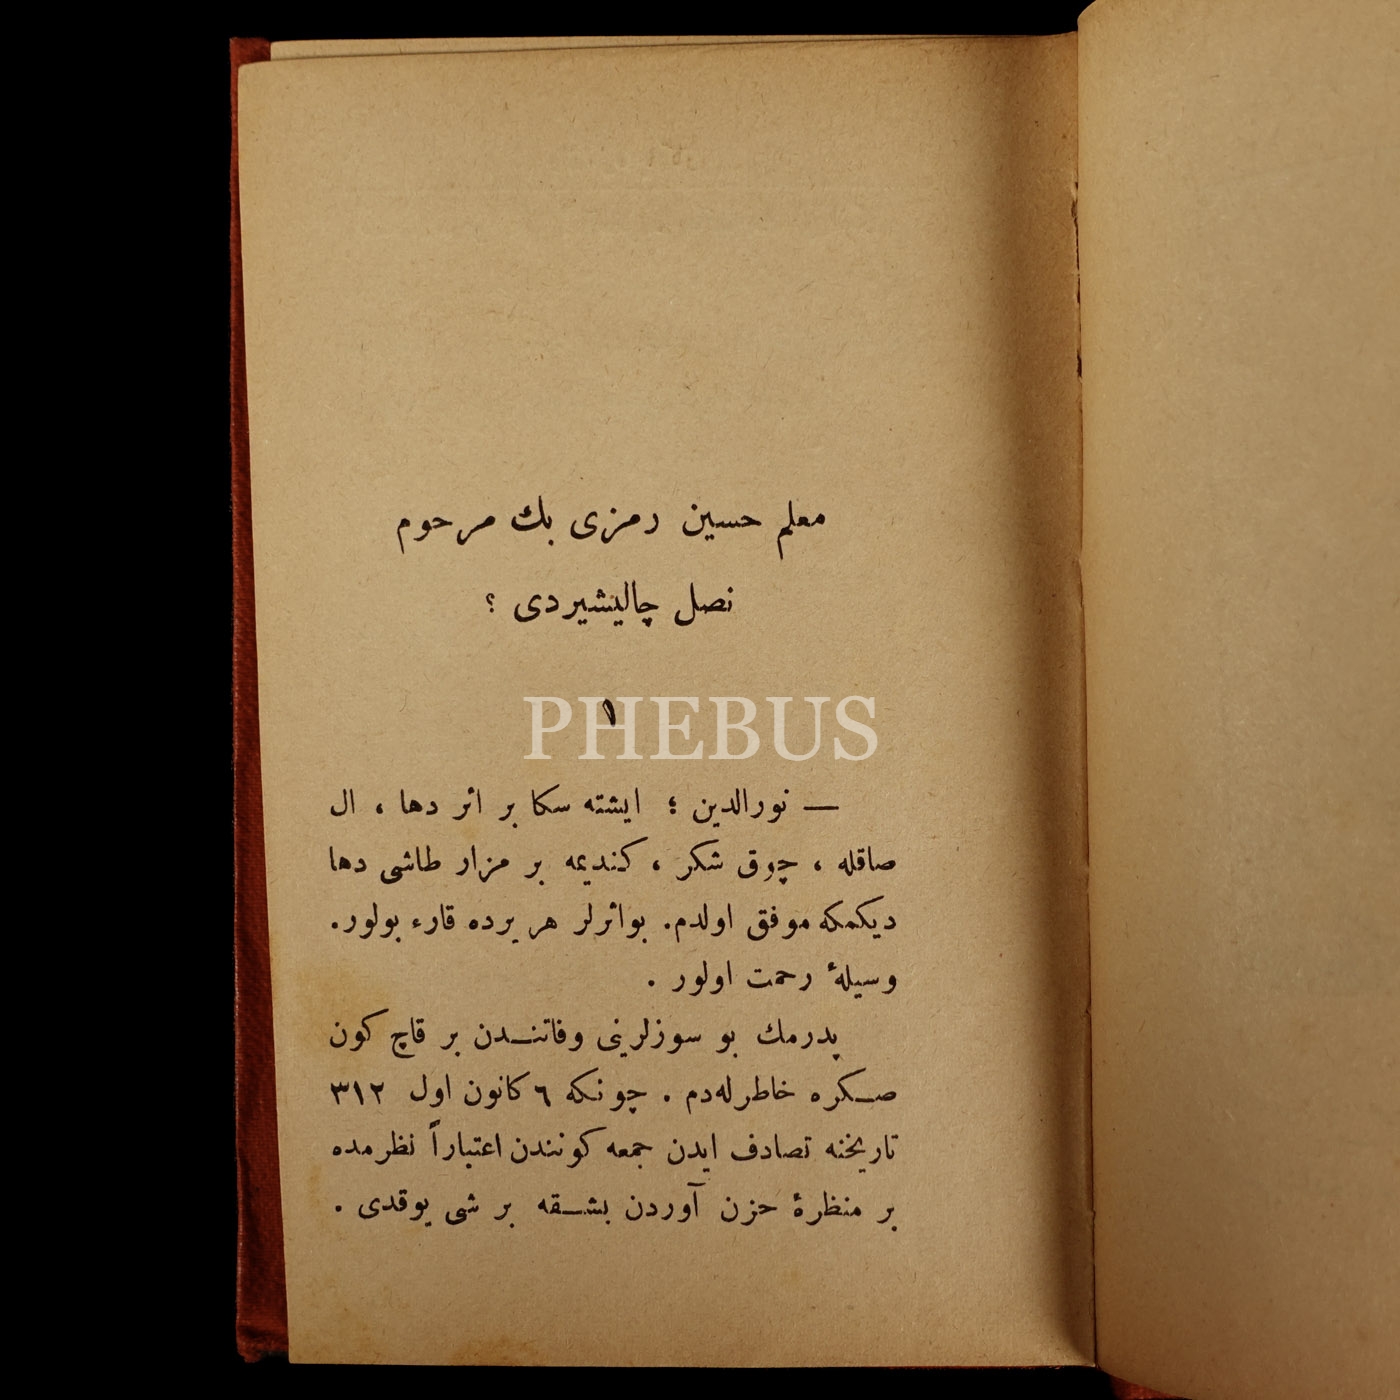 معلم حسين رمزى بك مرحوم
نصل چاليشيردى ؟
PHEBUS
١
— نورالدين ؛ ايشته سكا بر اثر دها ، ال
صاقله ، چوق شكر ، كنديمه بر مزار طاشى دها
ديكمكه موفق اولدم. بواثرلر هر يرده قارء بولور.
وسيلهٔ رحمت اولور .
پدرمك بو سوزلرينى وفاتنـدن بر قاچ كون
صـكره خاطرلهدم . چونكه ٦ كانون اول ٣١٢
تاريخنه تصادف ايدن جمعه كونندن اعتباراً نظرمده
بر منظرهٔ حزن آوردن بشـقه بر شى يوقدى .